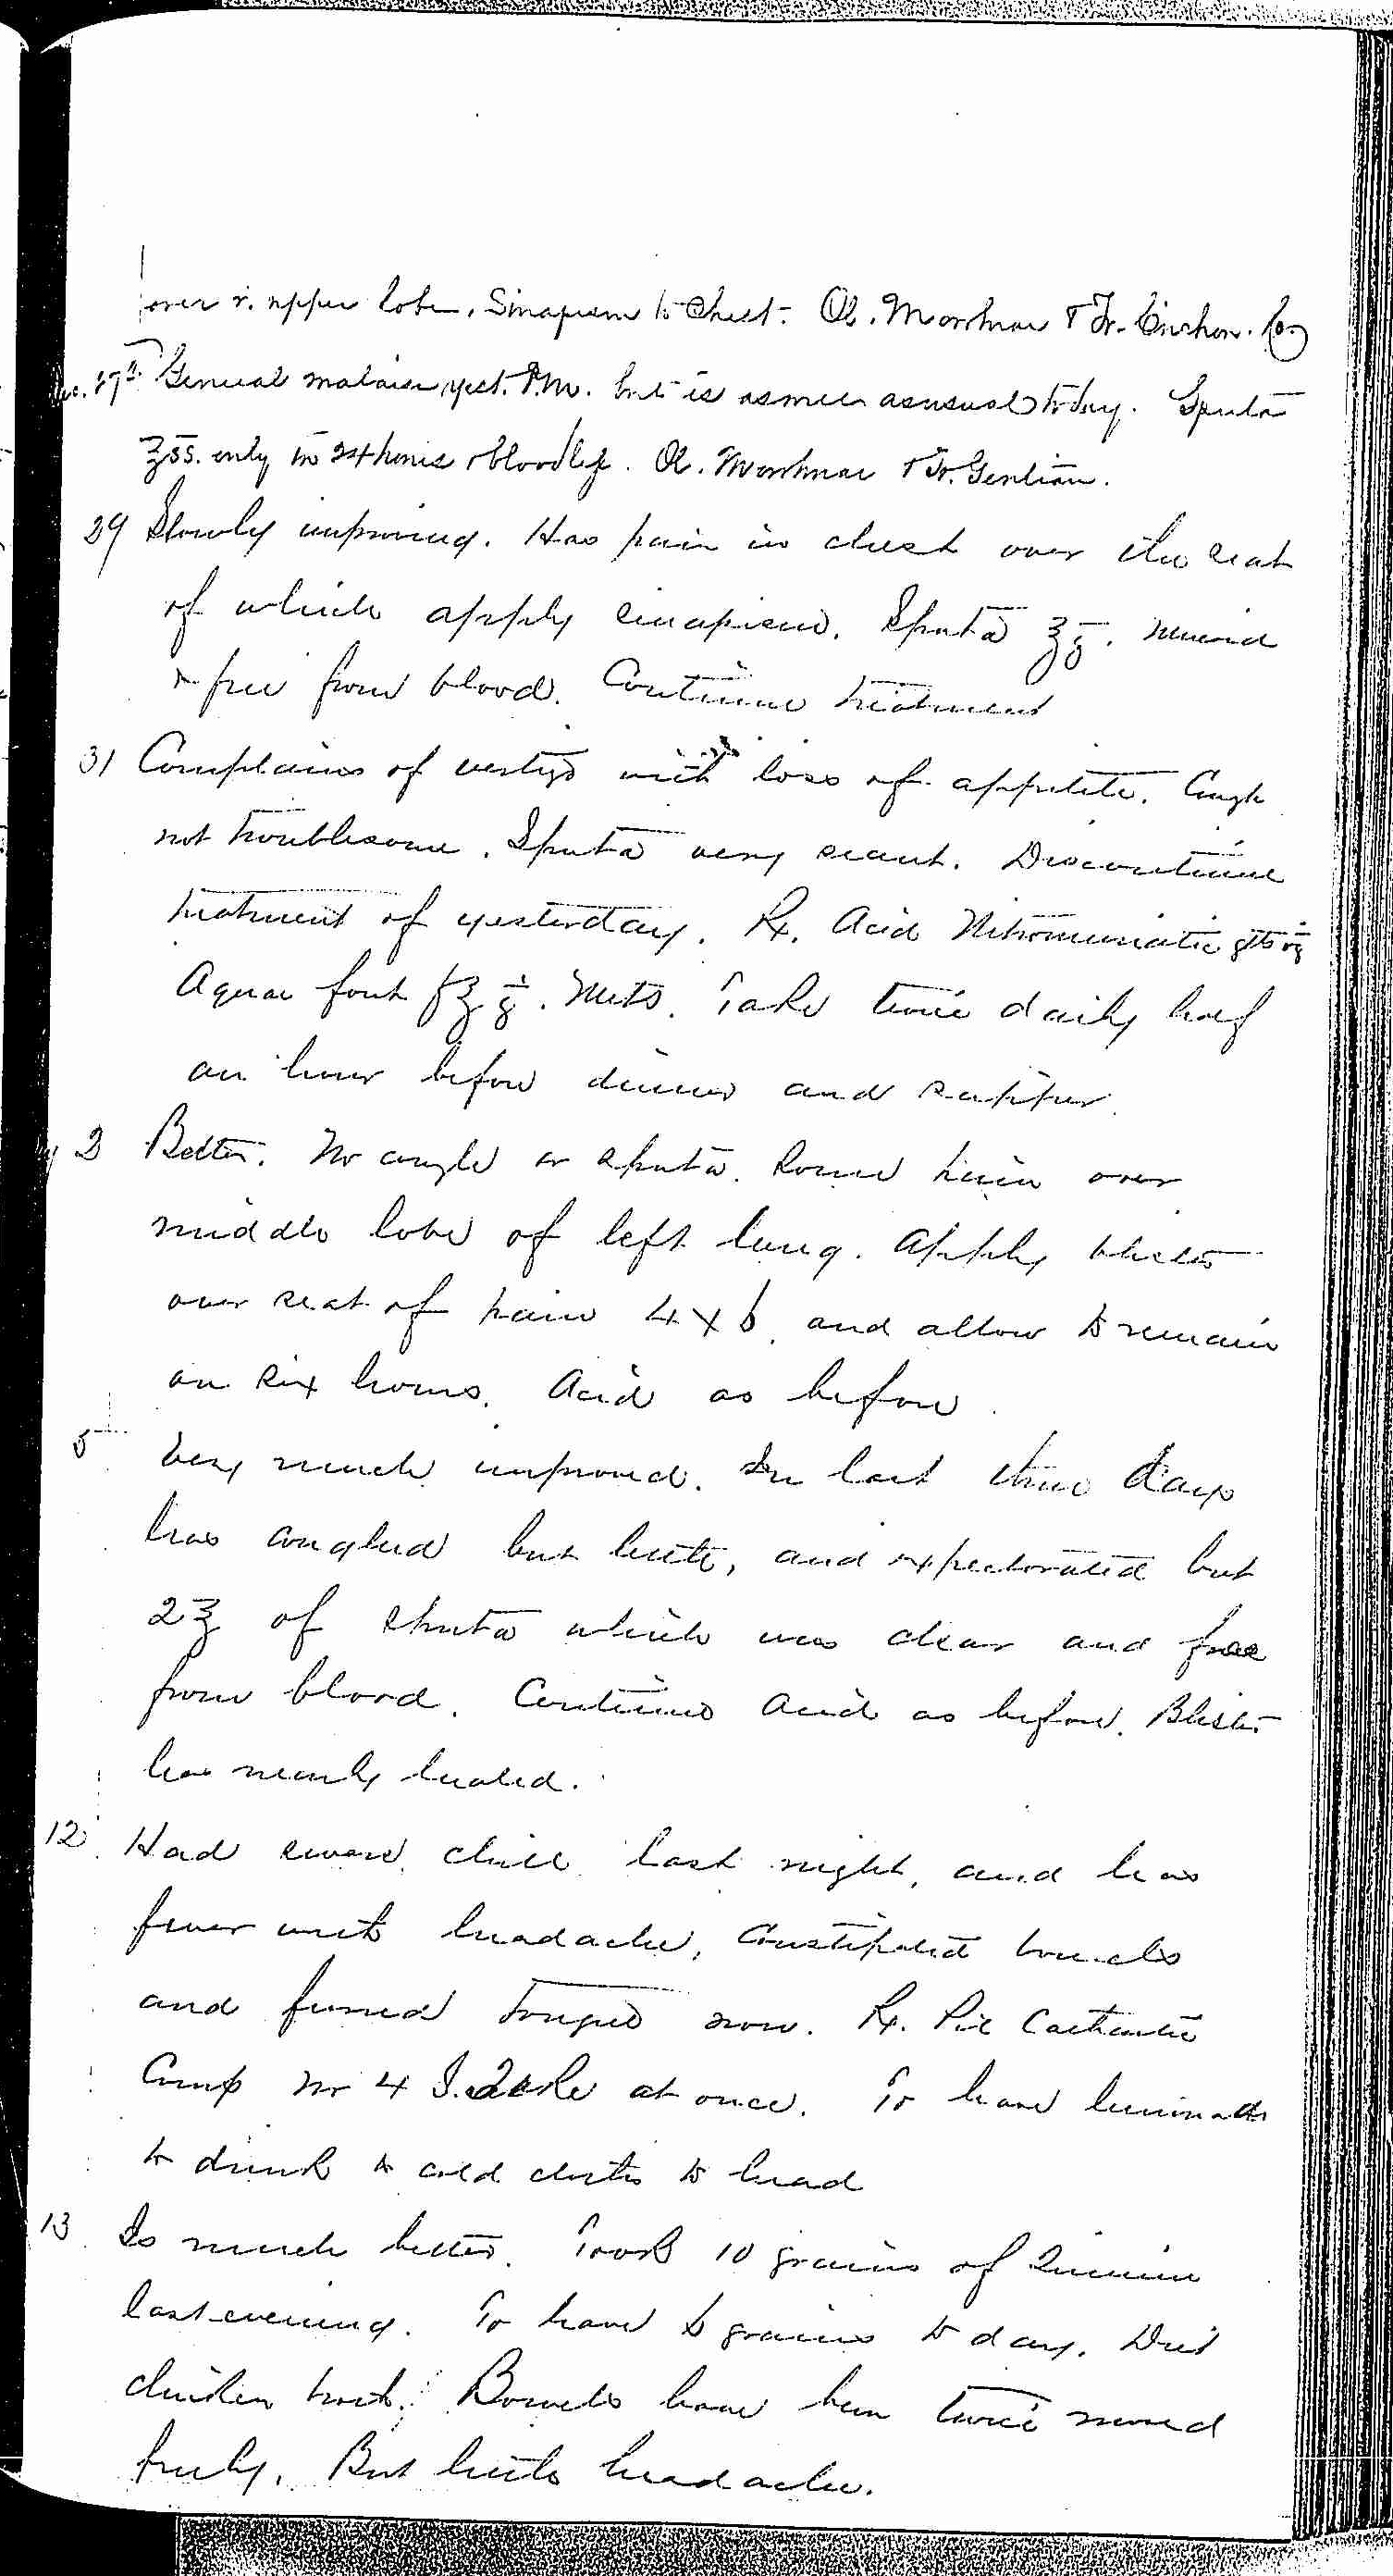 over r. upper lobe. Sinapism to Chest. Ol. Morrhuae & Tr. Cinchon. Co.
Dec. 27th General malaise yest. P.M. but is as well as usual to day. Sputa
℥ss. only in 24 hours & bloodless. Ol. Morrhuae & Tr. Gentian.
29 Slowly improving. Has pain in chest over the seat
of which apply sinapism. Sputa ℥j. mucoid
& free from blood. Continue treatment
31 Complains of vertigo with loss of appetite. Cough
not troublesome. Sputa very scant. Discontinue
treatment of yesterday. Rx. Acid Nitromuriatic gtt vj
Aquae font f℥j. Mets. Take twice daily half
an hour before dinner and supper.
2 Better. No cough or sputa. Some pain over
middle lobe of left lung. Apply blister
over seat of pain 4 x 6, and allow to remain
on six hours. Acid as before.
5 Very much improved. In last three days
has coughed but little, and expectorated but
2℥ of sputa which was clear and free
from blood. Continue acid as before. Blister
has nearly healed.
12 Had severe chill last night, and has
fever with headache, constipated bowels
and furred tongue now. Rx. Pil Cathartic
Comp No 4 S. Take at once. To have lemonade
to drink & cold cloths to head
13 Is much better. Took 10 grains of Quinine
last evening. To have 6 grains to day. Diet
chicken broth. Bowels have been twice moved
freely. But little headache.